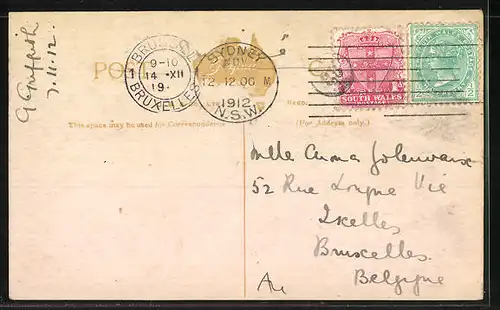 G Griffith
7.11.12.
POST
BRUXELLES
1
9-10
14 - XII
19
BRUXELLES
SYDNEY
NOV
12-12.00 M
1912
N.S.W.
SOUTH WALES
This space may be used for Correspondence
(For Address only.)
Mlle Anna
52 Rue Longue Vie
Ixelles
Bruxelles.
Belgique